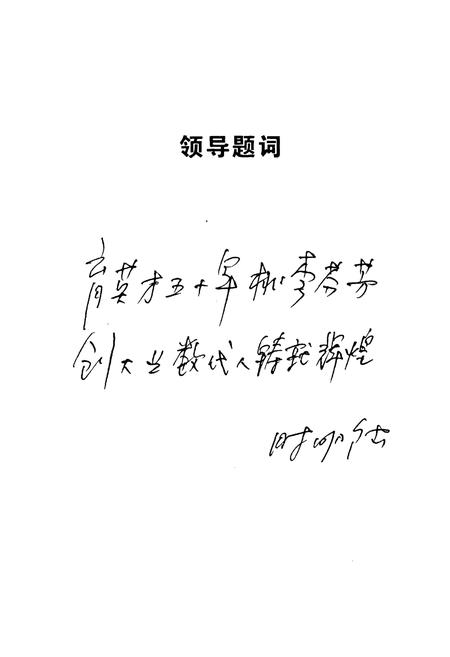 领导题词
育英才五十年桃李芬芳
创大业数代人铸就辉煌